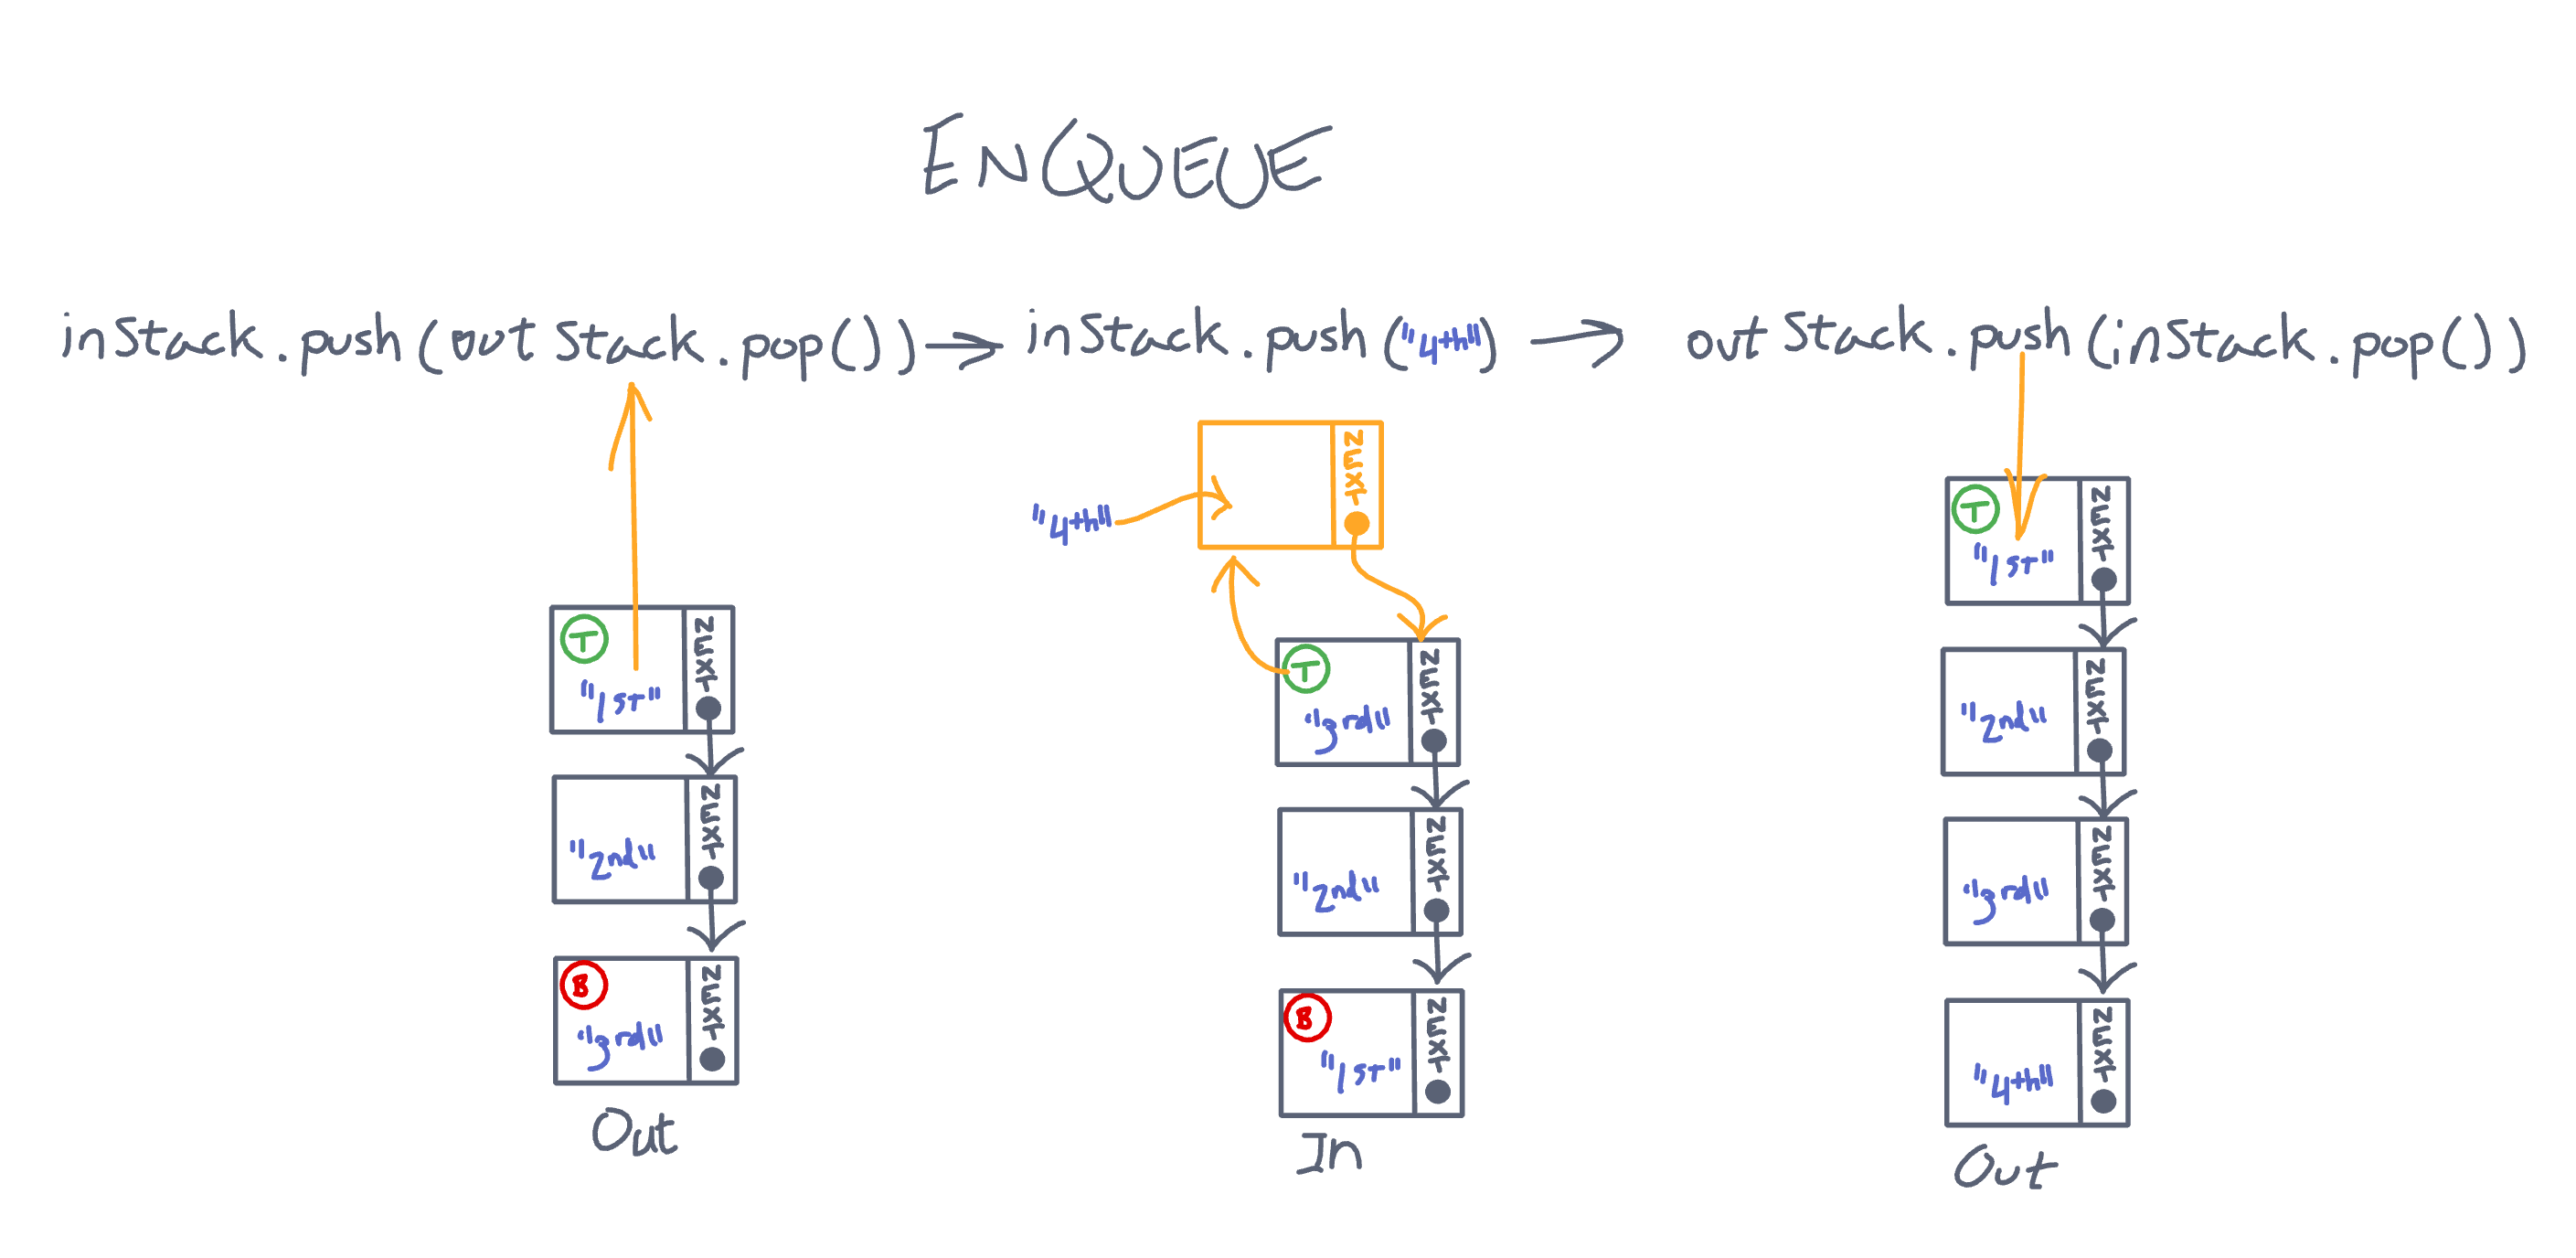 ENQUEUE
inStack.push(outStack.pop()) → inStack.push("4th") → outStack.push(inStack.pop())
"4th"
NEXT
T
"1st"
NEXT
"2nd"
NEXT
B
"3rd"
NEXT
Out
T
"3rd"
NEXT
"2nd"
NEXT
B
"1st"
NEXT
In
T
"1st"
NEXT
"2nd"
NEXT
"3rd"
NEXT
"4th"
NEXT
Out